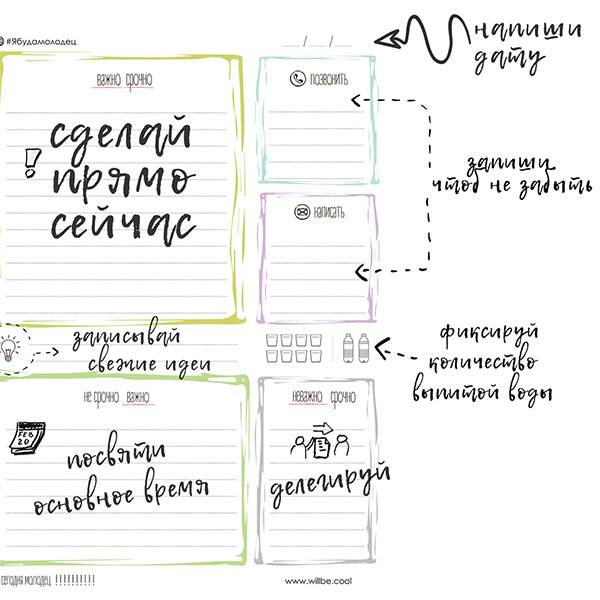 #Ябудамолодец
__/__/__
напиши
дату
важно срочно
! сделай
прямо
сейчас
позвонить
запиши
чтоб не забыть
написать
записывай
свежие идеи
фиксируй
количество
выпитой воды
не срочно важно
FEB
20
посвяти
основное время
неважно срочно
делегируй
сегодня молодец !!!!!!!!!!
www.willbe.cool